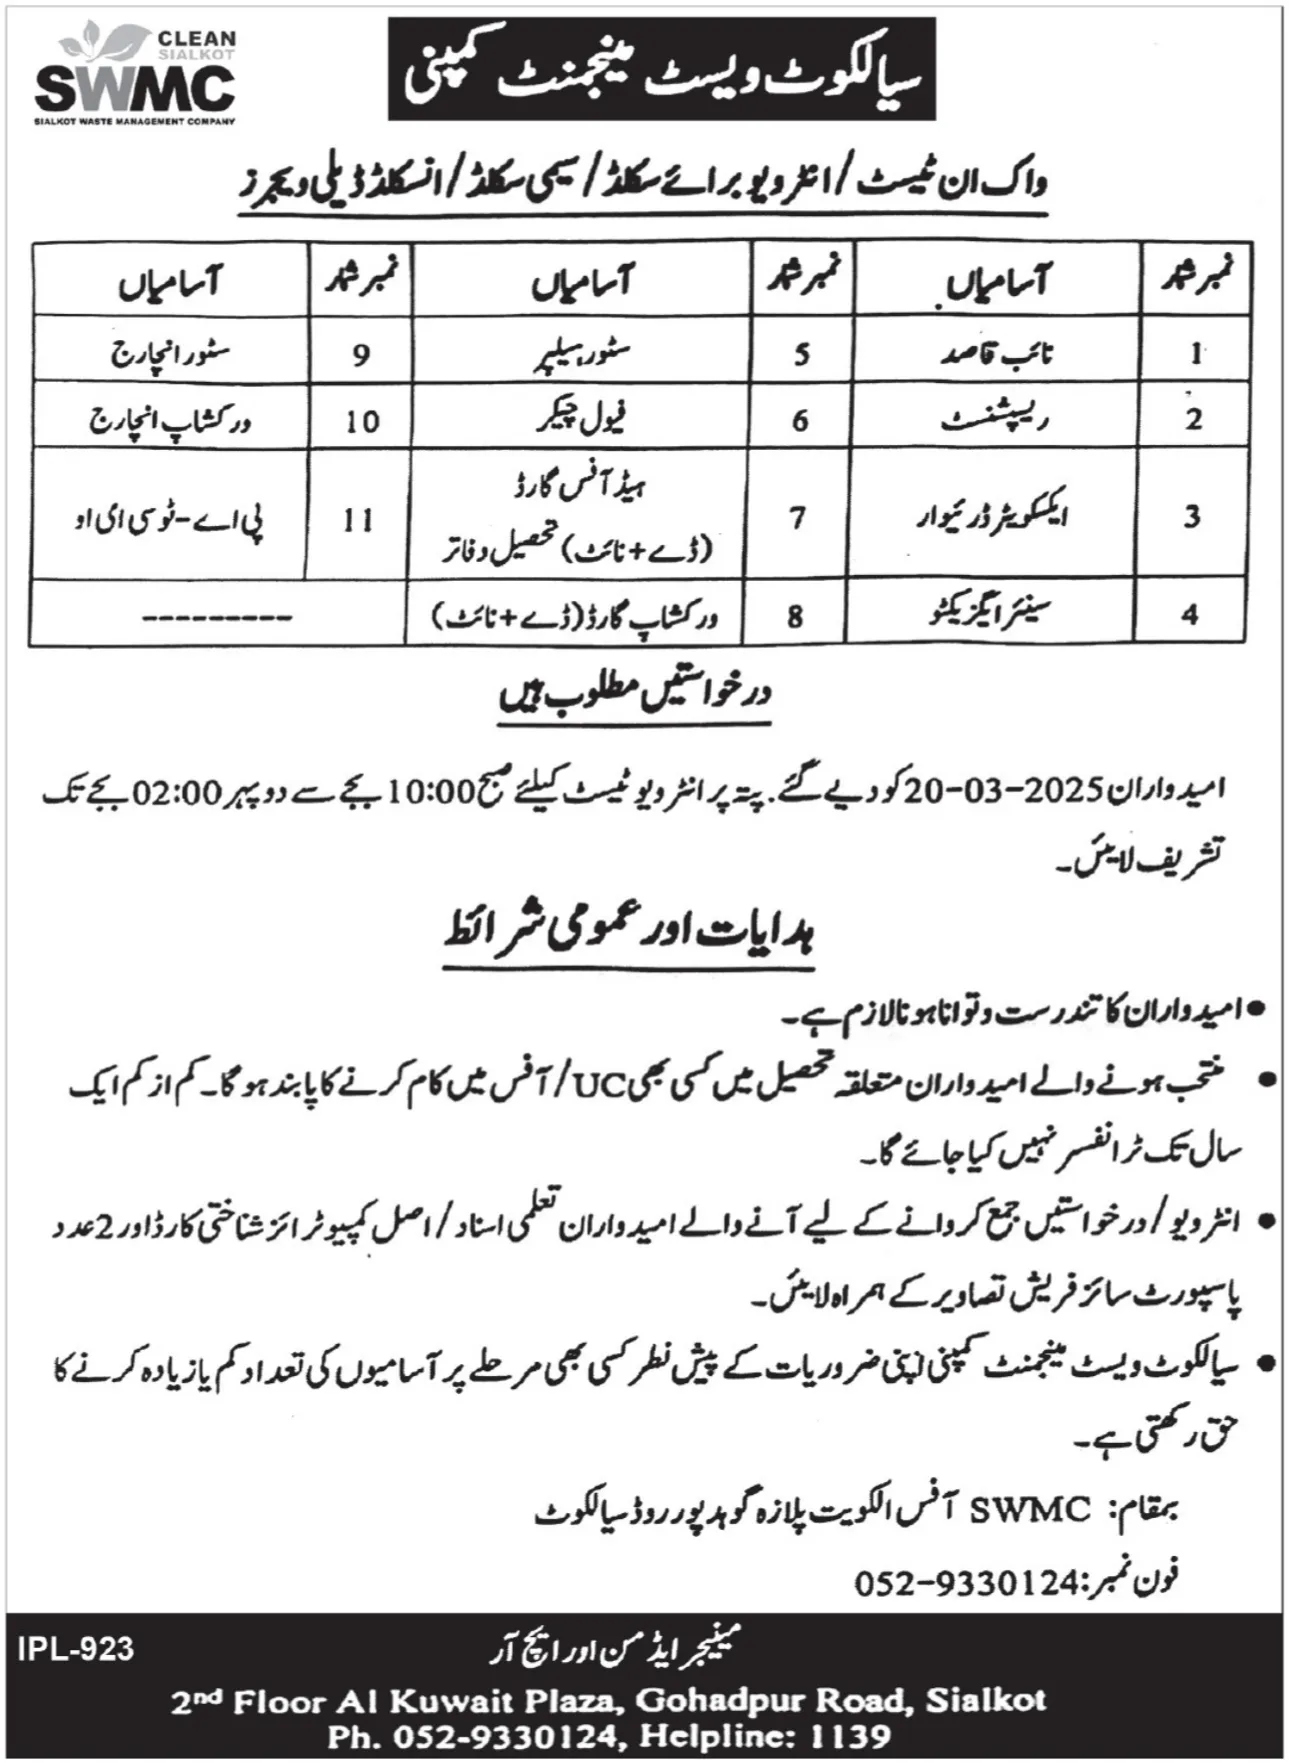 CLEAN
SIALKOT
SWMC
SIALKOT WASTE MANAGEMENT COMPANY
سیالکوٹ ویسٹ مینجمنٹ کمپنی
واک ان ٹیسٹ/انٹرویو برائے سکلڈ/سیمی سکلڈ/انسکلڈ ڈیلی ویجرز
نمبر شمار آسامیاں نمبر شمار آسامیاں نمبر شمار آسامیاں
1 نائب قاصد 5 سٹور ہیلپر 9 سٹور انچارج
2 ریسپشنسٹ 6 فیول چیکر 10 ورکشاپ انچارج
3 ایکسکویٹر ڈرائیوار 7 ہیڈ آفس گارڈ
(ڈے+نائٹ) تحصیل دفاتر 11 پی اے-ٹو سی ای او
4 سینئر ایگزیکٹو 8 ورکشاپ گارڈ (ڈے+نائٹ) ---------
درخواستیں مطلوب ہیں
امیدواران 2025-03-20 کو دیے گئے. پتہ پر انٹرویو ٹیسٹ کیلئے صبح 10:00 بجے سے دوپہر 02:00 بجے تک
تشریف لائیں۔
ہدایات اور عمومی شرائط
● امیدواران کا تندرست و توانا ہونا لازم ہے۔
● منتخب ہونے والے امیدواران متعلقہ تحصیل میں کسی بھی UC/آفس میں کام کرنے کا پابند ہوگا۔ کم از کم ایک
سال تک ٹرانفسر نہیں کیا جائے گا۔
● انٹرویو/درخواستیں جمع کروانے کے لیے آنے والے امیدواران تعلمی اسناد/اصل کمپیوٹرائز شناختی کارڈ اور 2 عدد
پاسپورٹ سائز فریش تصاویر کے ہمراہ لائیں۔
● سیالکوٹ ویسٹ مینجمنٹ کمپنی اپنی ضروریات کے پیش نظر کسی بھی مرحلے پر آسامیوں کی تعداد کم یا زیادہ کرنے کا
حق رکھتی ہے۔
بمقام: SWMC آفس الکویت پلازہ گوہدپور روڈ سیالکوٹ
فون نمبر: 052-9330124
مینیجر ایڈمن اور ایچ آر
IPL-923
2nd Floor Al Kuwait Plaza, Gohadpur Road, Sialkot
Ph. 052-9330124, Helpline: 1139